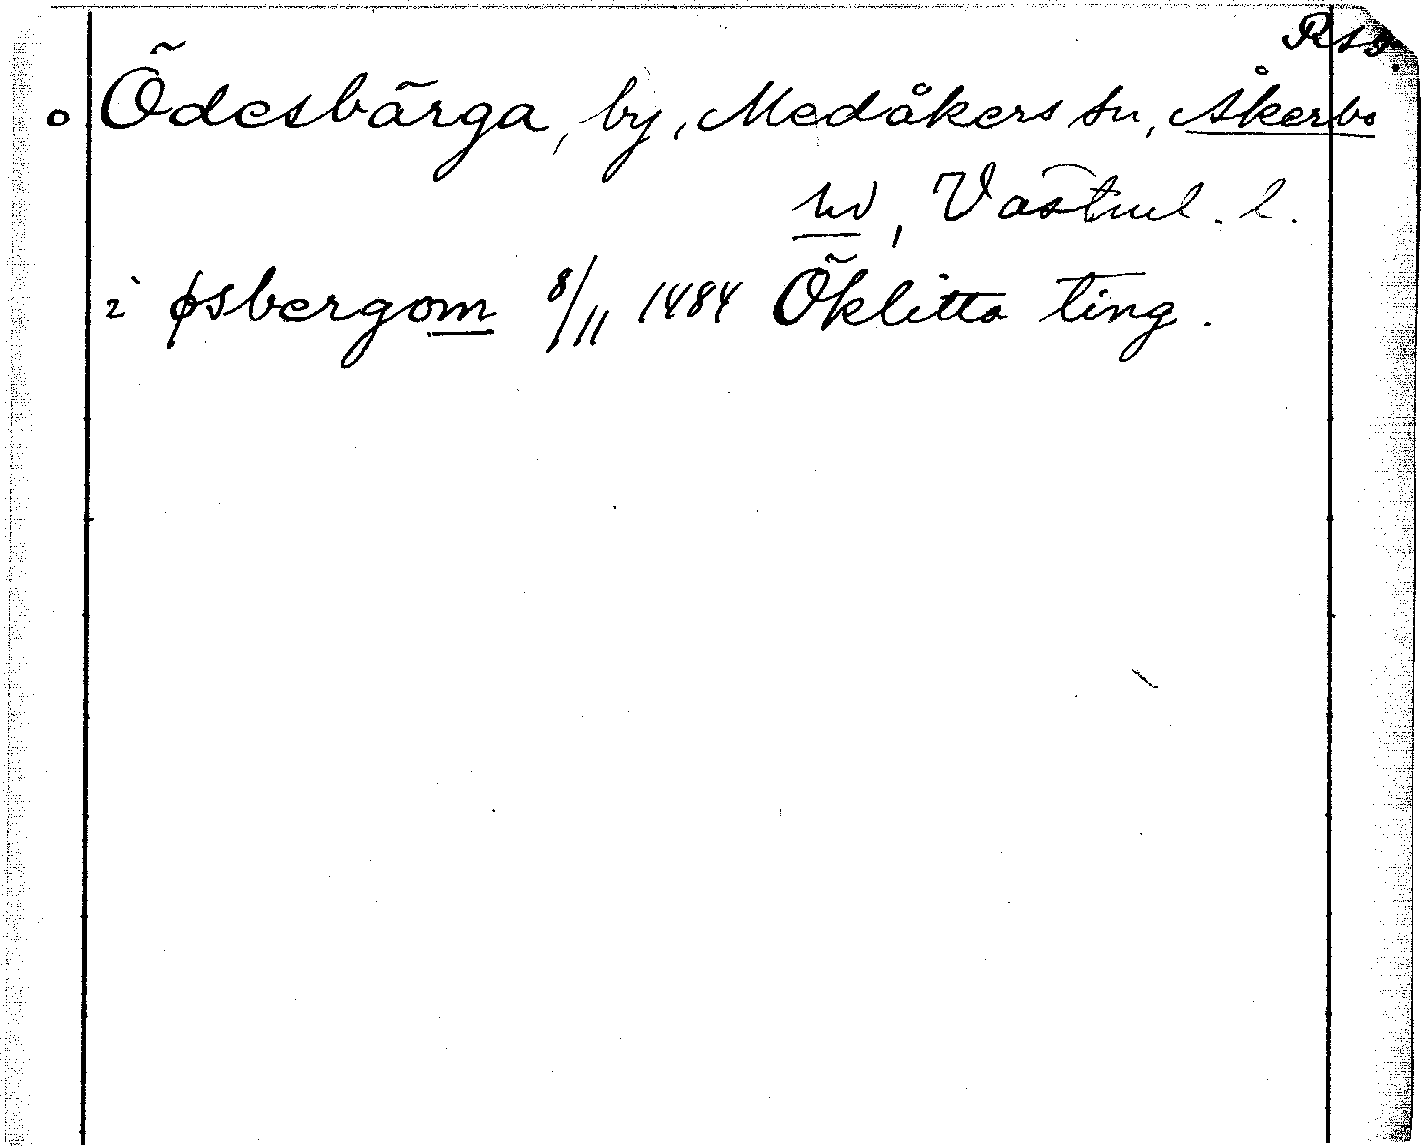 o Ödesbärga, by, Medåkers sn, Åkerbo
hd, Västml. l.
i øsbergom 8/11 1484 Öklitta ting.